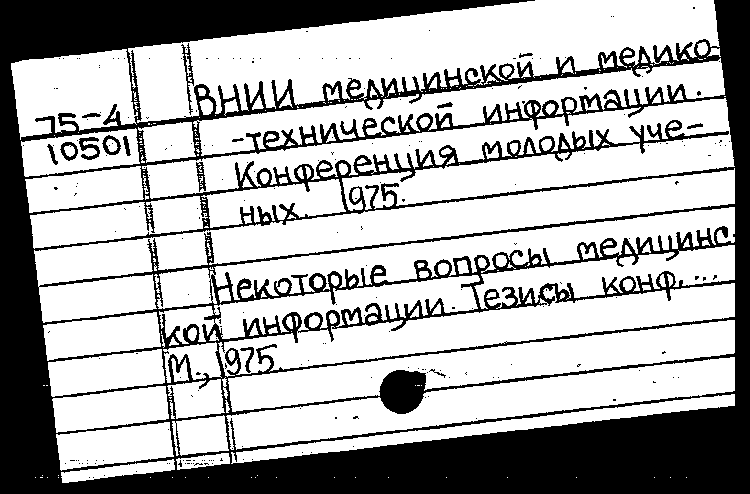 75-4
10501
ВНИИ медицинской и медико-
-технической информации.
Конференция молодых уче-
ных. 1975.
Некоторые вопросы медицинс
кой информации. Тезисы конф. ...
М., 1975.